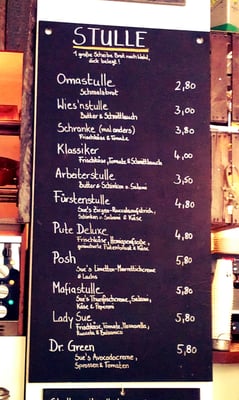 STULLE
1 große Scheibe Brot nach Wahl,
dick belegt!
Omastulle 2,80
Schmalzbrot
Wies'nstulle 3,00
Butter & Schnittlauch
Schranke (mal anders) 3,80
Frischkäse & Tomate
Klassiker 4,00
Frischkäse, Tomate & Schnittlauch
Arbeiterstulle 3,50
Butter & Schinken o. Salami
Fürstenstulle 4,80
Sue's Ziegen-Rucolaaufstrich,
Schinken o. Salami & Käse
Pute Deluxe 4,80
Frischkäse,
geräucherte Putenbrust & Käse
Posh 5,80
Sue's Limetten-Meerrettichcreme
& Lachs
Mafiastulle 5,80
Sue's Thunfischcreme, Salami,
Käse & Peperoni
Lady Sue 5,80
Frischkäse, Tomate,
Rucola & Balsamico
Dr. Green 5,80
Sue's Avocadocreme,
Sprossen & Tomaten